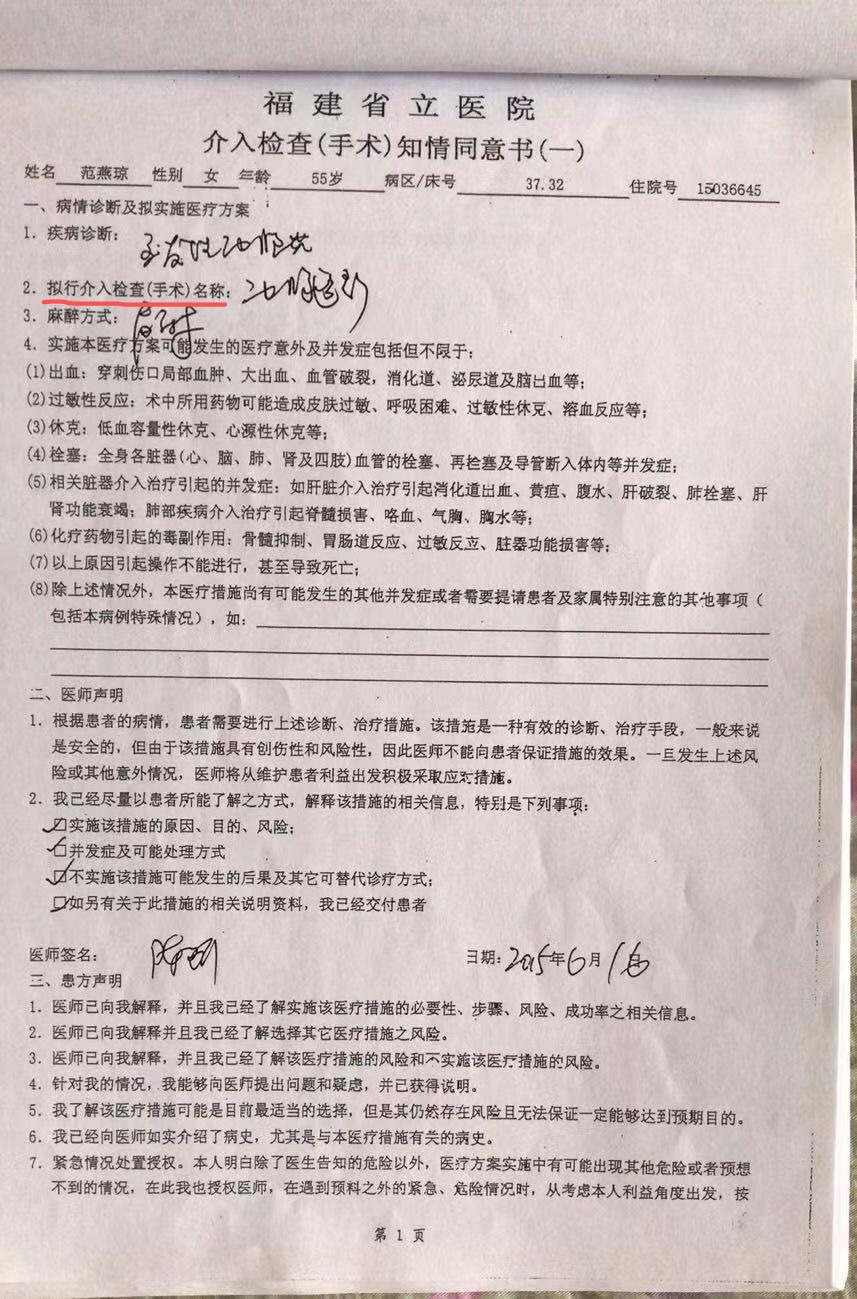 福建省立医院
介入检查(手术)知情同意书(一)
姓名 范燕琼 性别 女 年龄 55岁 病区/床号 37.32 住院号 15036645
一、病情诊断及拟实施医疗方案
1. 疾病诊断:
2. 拟行介入检查(手术)名称:
3. 麻醉方式:
4. 实施本医疗方案可能发生的医疗意外及并发症包括但不限于:
(1)出血: 穿刺伤口局部血肿、大出血、血管破裂, 消化道、泌尿道及脑出血等;
(2)过敏性反应: 术中所用药物可能造成皮肤过敏、呼吸困难、过敏性休克、溶血反应等;
(3)休克: 低血容量性休克、心源性休克等;
(4)栓塞: 全身各脏器(心、脑、肺、肾及四肢)血管的栓塞、再栓塞及导管断入体内等并发症;
(5)相关脏器介入治疗引起的并发症: 如肝脏介入治疗引起消化道出血、黄疸、腹水、肝破裂、肺栓塞、肝
肾功能衰竭; 肺部疾病介入治疗引起脊髓损害、咯血、气胸、胸水等;
(6)化疗药物引起的毒副作用: 骨髓抑制、胃肠道反应、过敏反应、脏器功能损害等;
(7)以上原因引起操作不能进行, 甚至导致死亡;
(8)除上述情况外, 本医疗措施尚有可能发生的其他并发症或者需要提请患者及家属特别注意的其他事项(
包括本病例特殊情况), 如:
二、医师声明
1. 根据患者的病情, 患者需要进行上述诊断、治疗措施。该措施是一种有效的诊断、治疗手段, 一般来说
是安全的, 但由于该措施具有创伤性和风险性, 因此医师不能向患者保证措施的效果。一旦发生上述风
险或其他意外情况, 医师将从维护患者利益出发积极采取应对措施。
2. 我已经尽量以患者所能了解之方式, 解释该措施的相关信息, 特别是下列事项:
☑实施该措施的原因、目的、风险;
☑并发症及可能处理方式
☑不实施该措施可能发生的后果及其它可替代诊疗方式;
☑如另有关于此措施的相关说明资料, 我已经交付患者
医师签名: 日期: 2015年6月1日
三、患方声明
1. 医师已向我解释, 并且我已经了解实施该医疗措施的必要性、步骤、风险、成功率之相关信息。
2. 医师已向我解释并且我已经了解选择其它医疗措施之风险。
3. 医师已向我解释, 并且我已经了解该医疗措施的风险和不实施该医疗措施的风险。
4. 针对我的情况, 我能够向医师提出问题和疑虑, 并已获得说明。
5. 我了解该医疗措施可能是目前最适当的选择, 但是其仍然存在风险且无法保证一定能够达到预期目的。
6. 我已经向医师如实介绍了病史, 尤其是与本医疗措施有关的病史。
7. 紧急情况处置授权。本人明白除了医生告知的危险以外, 医疗方案实施中有可能出现其他危险或者预想
不到的情况, 在此我也授权医师, 在遇到预料之外的紧急、危险情况时, 从考虑本人利益角度出发, 按
第 1 页